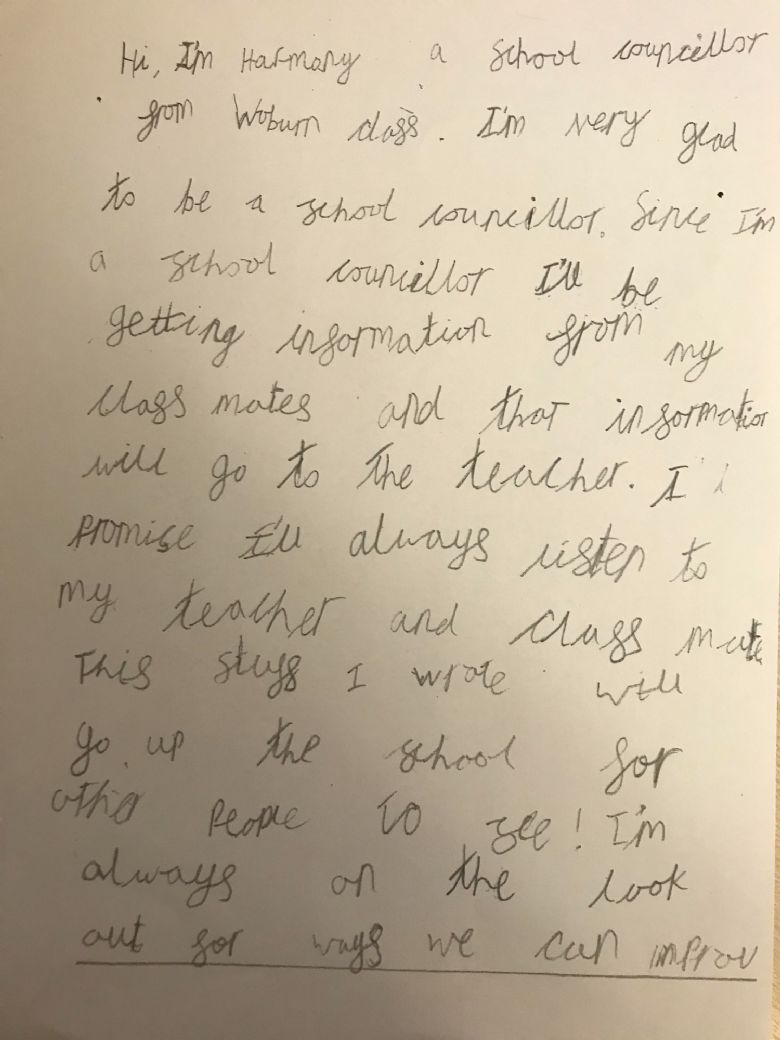 Hi, I'm Harmany a school councillor
from Woburn class. I'm very glad
to be a school councillor. Since I'm
a school councillor I'll be
getting information from my
class mates and that information
will go to the teacher. I
promise I'll always listen to
my teacher and class mate
This stuff I wrote will
go up the school for
other People to see! I'm
always on the look
out for ways we can improv